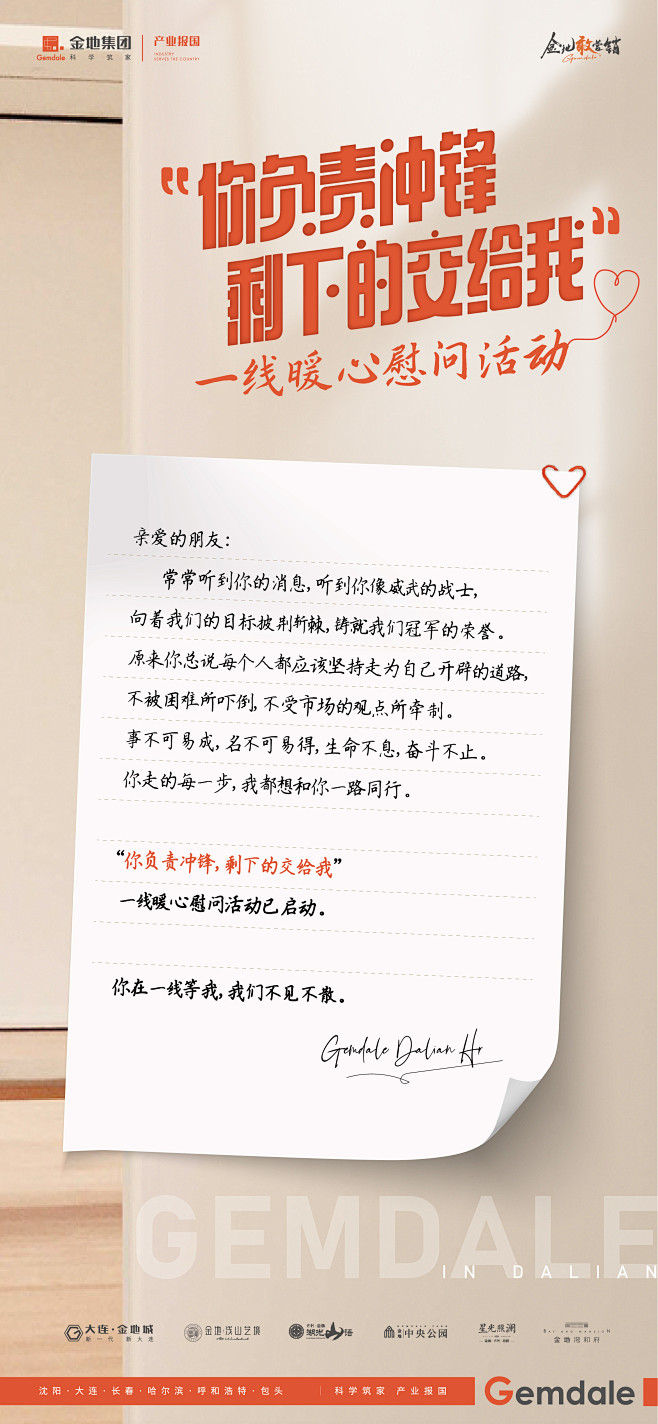 金地集团
Gemdale 科学筑家
产业报国
INDUSTRY
SERVES THE COUNTRY
金地敢营销
Gemdale
“你负责冲锋
剩下的交给我”
一线暖心慰问活动
亲爱的朋友：
常常听到你的消息，听到你像威武的战士，
向着我们的目标披荆斩棘，铸就我们冠军的荣誉。
原来你总说每个人都应该坚持走为自己开辟的道路，
不被困难所吓倒，不受市场的观点所牵制。
事不可易成，名不可易得，生命不息，奋斗不止。
你走的每一步，我都想和你一路同行。
“你负责冲锋，剩下的交给我”
一线暖心慰问活动已启动。
你在一线等我，我们不见不散。
Gemdale Dalian Hr
GEMDALE
IN DALIAN
大连·金地城
新一代 新大连
金地·浅山艺境
湖光山语
中央公园
星光熙澜
金地湾和府
沈阳·大连·长春·哈尔滨·呼和浩特·包头
科学筑家 产业报国
Gemdale